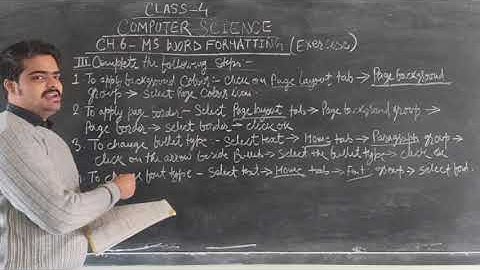 CLASS-4
COMPUTER SCIENCE
CH.6- MS WORD FORMATTING (Exercise)
III Complete the following steps:-
1. To apply background Colour:- click on Page layout tab → Page background
group → Select Page Colour icon.
2. To apply page border - Select Page layout tab → Page background group →
Page border → select border → click ok
3. To change bullet type - Select text → Home tab → Paragraph group →
click on the arrow beside Bullets → Select the bullet type → click ok
To change font type - Select text → Home tab → Font group → select font.